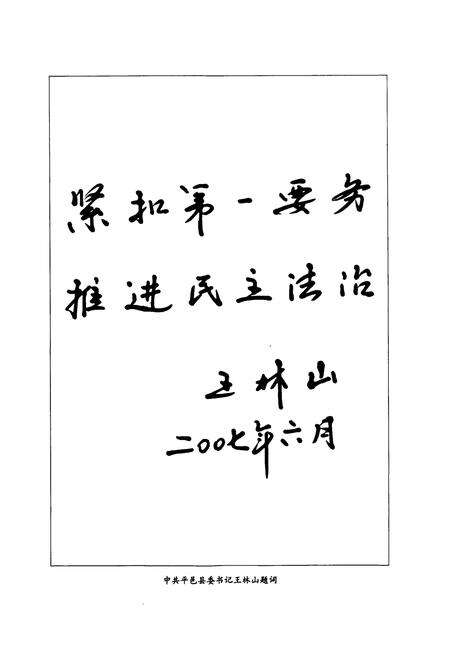 紧扣第一要务
推进民主法治
王林山
二〇〇七年六月
中共平邑县委书记王林山题词